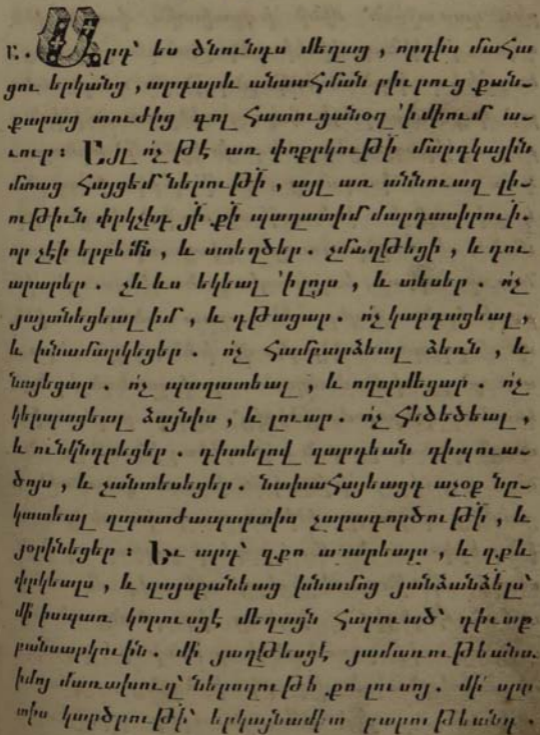 Բ. Արդ՝ ես ծնունդս մեղաց, որդիս մահա
ցու երկանց, արդարև անսահման բիւրուց քան-
քարաց տուժից գոլ հատուցանօղ ՚ի միում ա-
ւուր։ Այլ ոչ թէ առ փոքրկութի մարդկային
մտաց հայցեմ ներութի, այլ առ աննուազ լի-
ութիւն փրկչիդ յի քի պաղատիմ մարդասիրուի.
որ չէի երբեմն, և ստեղծեր. չմաղթեցի, և դու
արարեր. չև ևս եկեալ ՚ի լոյս, և տեսեր. ոչ
յայտնեցեալ իմ, և գթացար. ոչ կարդացեալ,
և խնամարկեցեր. ոչ համբարձեալ ձեռն, և
նայեցար. ոչ պաղատեալ, և ողորմեցար. ոչ
կերպացեալ ձայնիս, և լուար. ոչ հեծեծեալ,
և ունկնդրեցեր. գիտելով զարդեան դիպուա-
ծոյս, և չանտեսեցեր. նախահայեացդ աչօք նը-
կատեալ զպատժապարտիս չարագործութի, և
յօրինեցեր։ Եւ արդ՝ զքո առարեալս, և զքև
փրկեալս, և զայսքանեաց խնամոց յանձանձելս՝
մի իսպառ կորուսցէ մեղացն հարուած՝ դիւաք
բանսարկուին. մի յաղթեսցէ յամառութեանս
իմոյ մառախուղ՝ ներողութե քո լուսոյ. մի սըր
տիս կարծրութի՝ երկայնամիտ բարութեանդ.